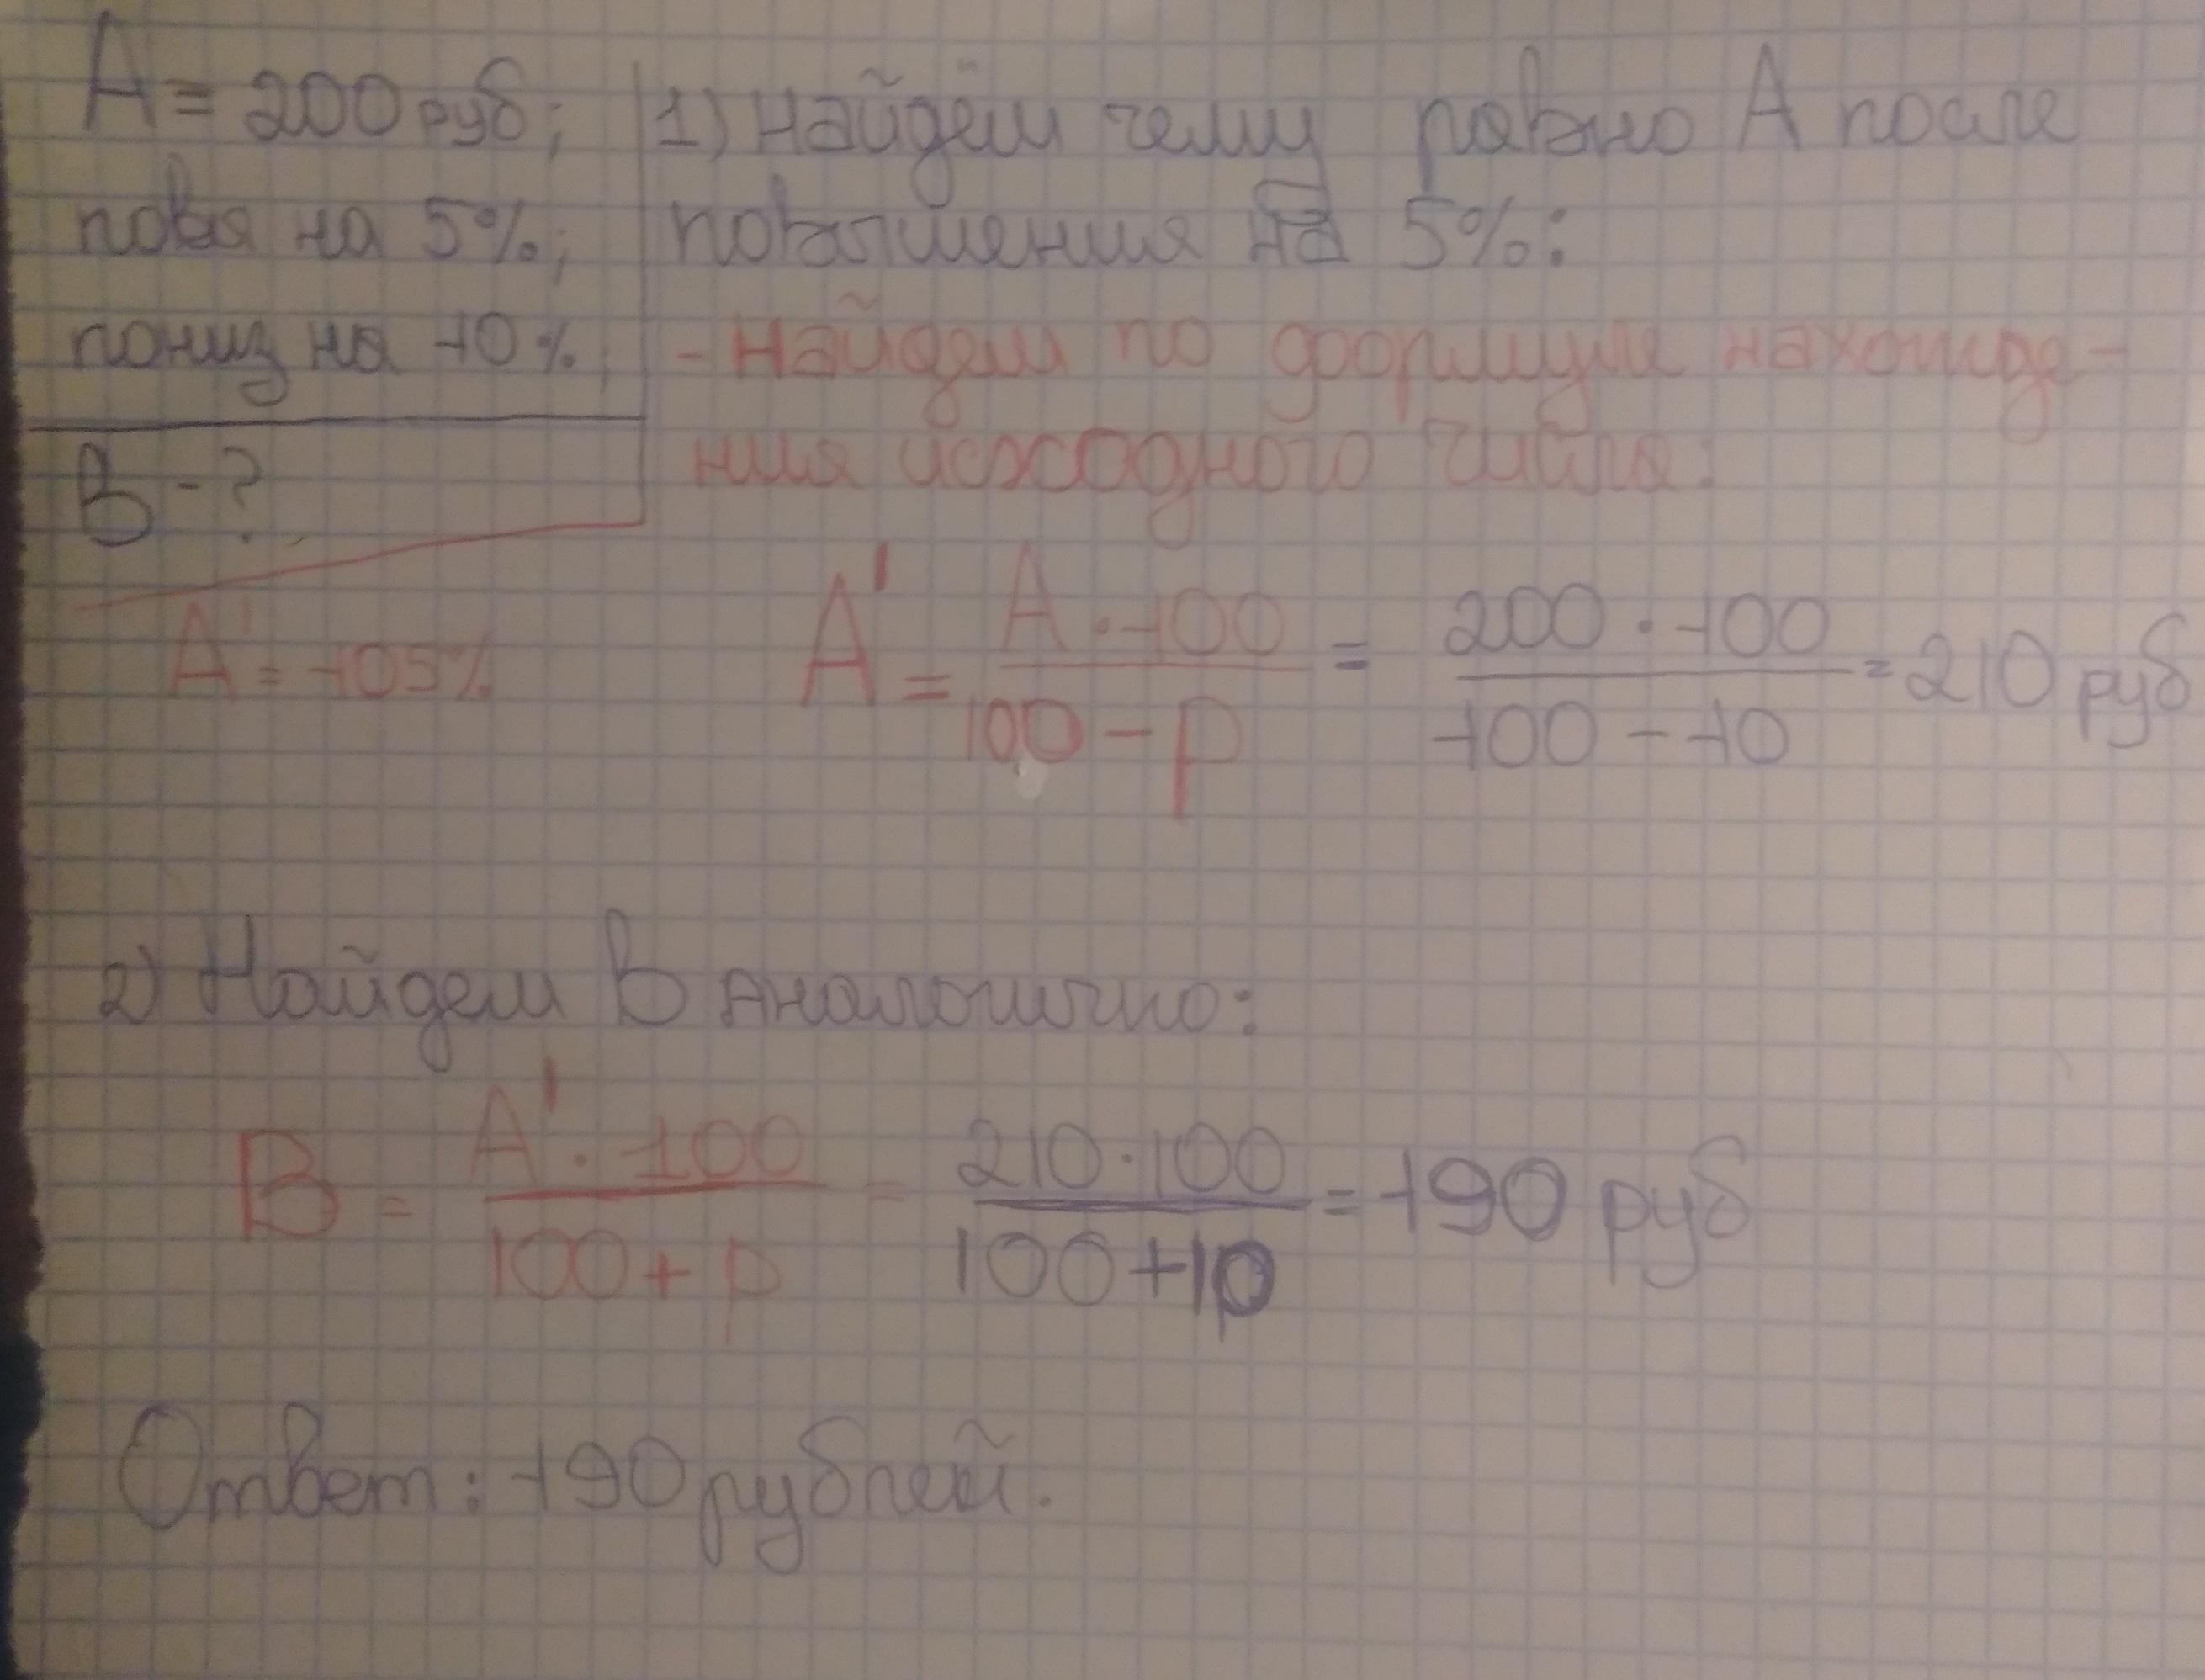 A = 200 руб;
повы на 5%;
пониз на 10%;
B - ?
A' = 105%
1) Найдём чему равно A после
повышения на 5%:
- Найдём по формуле нахожде-
ния исходного числа:
A' = A · 100 / 100 - p = 200 · 100 / 100 - 10 = 210 руб
2) Найдем B аналогично:
B = A' · 100 / 100 + p = 210 · 100 / 100 + 10 = 190 руб
Ответ: 190 рублей.